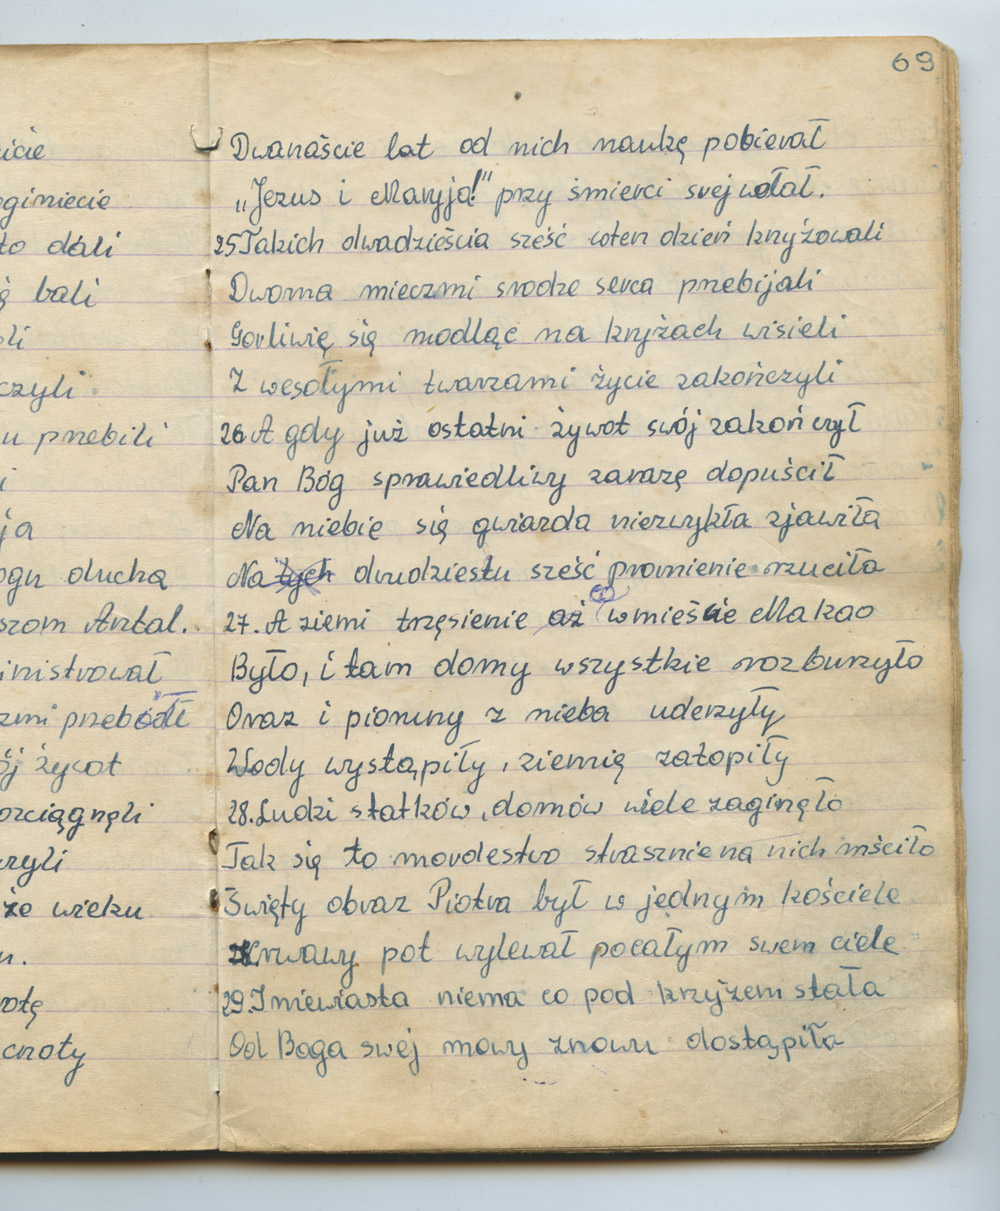 69
icie
oginiecie
to dali
ę bali
li
czyli
u przebili
i
ja
ogu ducha
szom Antal.
inistrował
zmi przebódł
ój żywot
ozciągnęli
że wieku
n.
otę
cnoty
Dwanaście lat od nich naukę pobierał
„Jezus i Maryja!" przy śmierci swej wołał.
25 Takich dwadzieścia sześć wten dzień krzyżowali
Dwoma mieczmi srodze serca przebijali
Gorliwię się modląc na krzyżach wisieli
Z wesołymi twarzami życie zakończyli
26 A gdy już ostatni żywot swój zakończył
Pan Bóg sprawiedliwy zarazę dopuścił
Na niebie się gwiazda niezwykła zjawiła
Na tych dwudziestu sześć promienie rzuciła
27. A ziemi trzęsienie aż co w mieście Makao
Było, i tam domy wszystkie rozburzyło
Oraz i pioruny z nieba uderzyły
Wody wystąpiły, ziemię zatopiły
28. Ludzi statków, domów wiele zaginęło
Tak się to morderstwo strasznie na nich mściło
Święty obraz Piotra był w jednym kościele
Krwawy pot wylewał pocałym swem ciele
29. I niewiasta niema co pod krzyżem stała
Od Boga swej mowy znowu dostąpiła